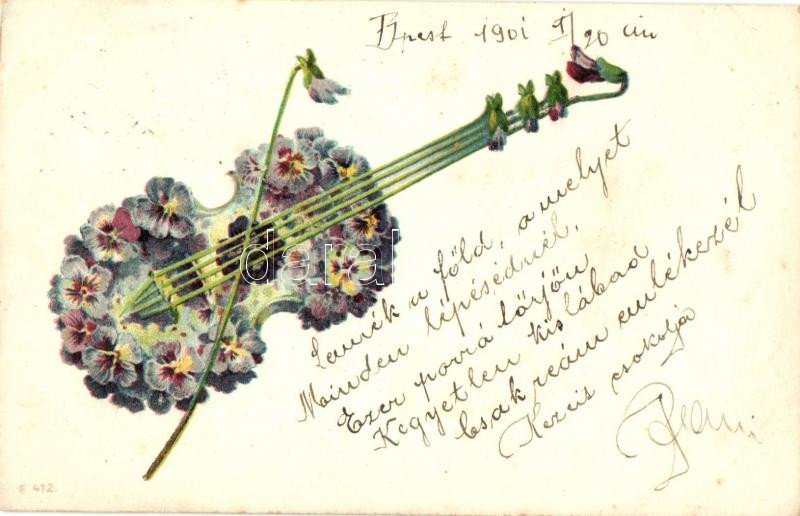 Bpest 1901 I/20 án
Lennék a föld, a melyet
Minden lépésednél,
Ezer porrá törjön
Kegyetlen kis lábad
Csak reám emlékezél
Kezeis csokolja
darabanth
E 472.